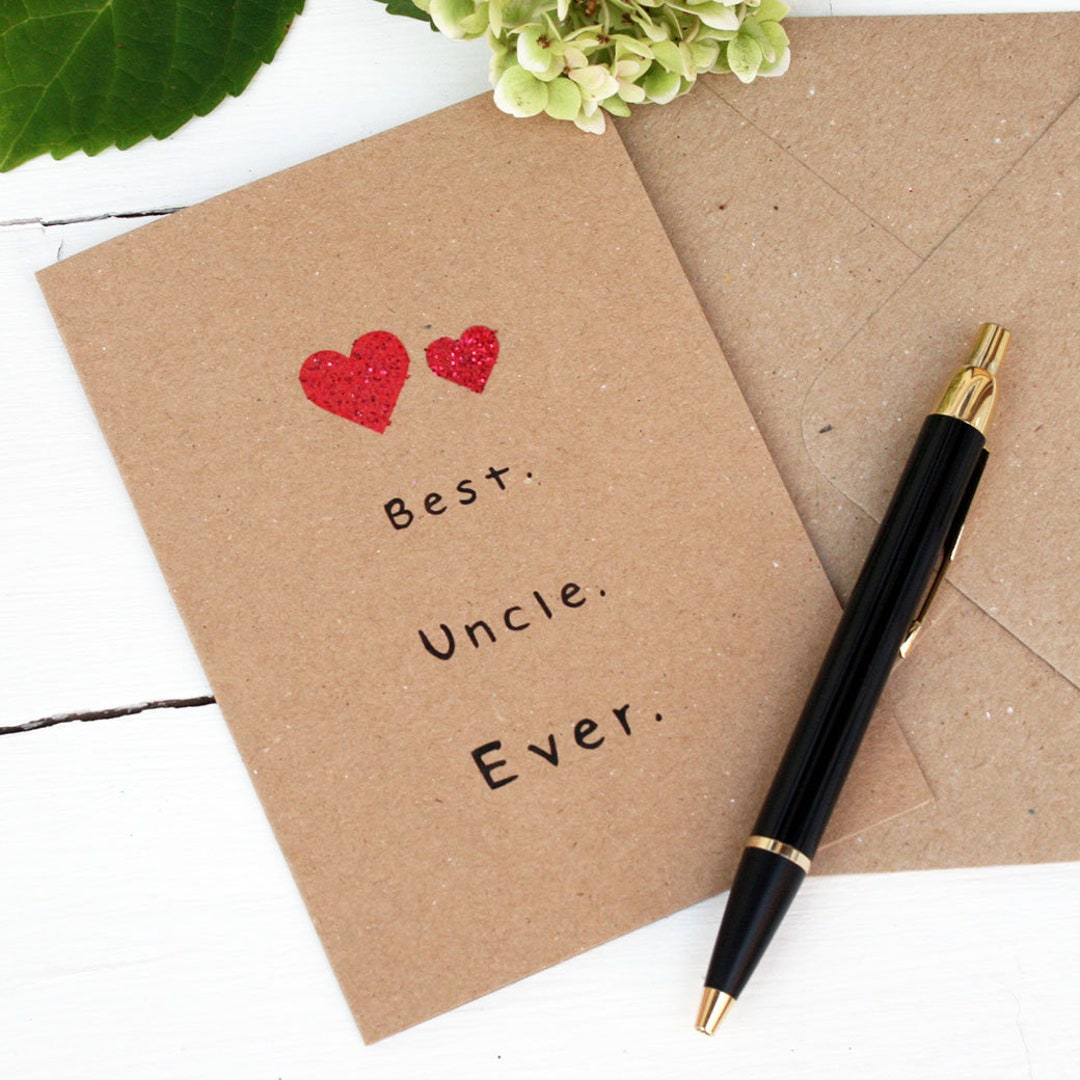 Best.
Uncle.
Ever.